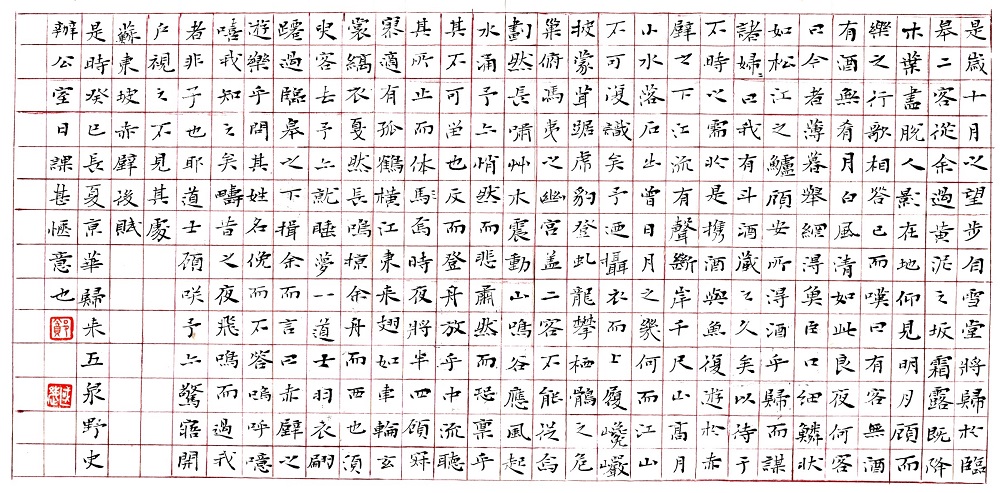 是歲十月之望步自雪堂將歸於臨
皋二客從余過黃泥之坂霜露既降
木葉盡脫人影在地仰見明月顧而
樂之行歌相答已而嘆曰有客無酒
有酒無肴月白風清如此良夜何客
曰今者薄暮舉網得魚巨口細鱗狀
如松江之鱸顧安所得酒乎歸而謀
諸婦〻曰我有斗酒藏之久矣以待子
不時之需於是攜酒與魚復遊於赤
壁之下江流有聲斷岸千尺山高月
小水落石出曾日月之幾何而江山
不可復識矣予迺攝衣而上履巉巖
披蒙茸踞虎豹登虬龍攀栖鶻之危
巢俯馮夷之幽宮蓋二客不能從焉
劃然長嘯艸木震動山鳴谷應風起
水涌予亦悄然而悲肅然而恐凜乎
其不可留也反而登舟放乎中流聽
其所止而休焉焉時夜將半四顧寂
寥適有孤鶴橫江東來翅如車輪玄
裳縞衣戛然長鳴掠余舟而西也須
臾客去予亦就睡夢一道士羽衣翩
躚過臨皋之下揖余而言曰赤壁之
遊樂乎問其姓名俛而不答嗚呼噫
嘻我知之矣疇昔之夜飛鳴而過我
者非子也耶道士顧咲予亦驚寤開
戶視之不見其處
蘇東坡赤壁後賦
是時癸巳長夏京華歸來五泉野史
辦公室日課甚愜意也